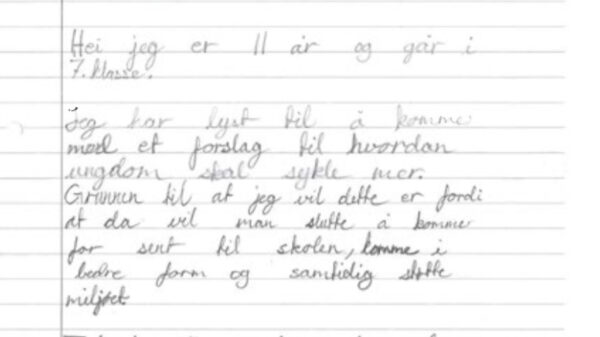 Hei jeg er 11 år og går i
7. klasse.
Jeg har lyst til å komme
med et forslag til hvordan
ungdom skal sykle mer.
Grunnen til at jeg vil dette er fordi
at da vil man slutte å komme
for sent til skolen, komme i
bedre form og samtidig støtte
miljøet